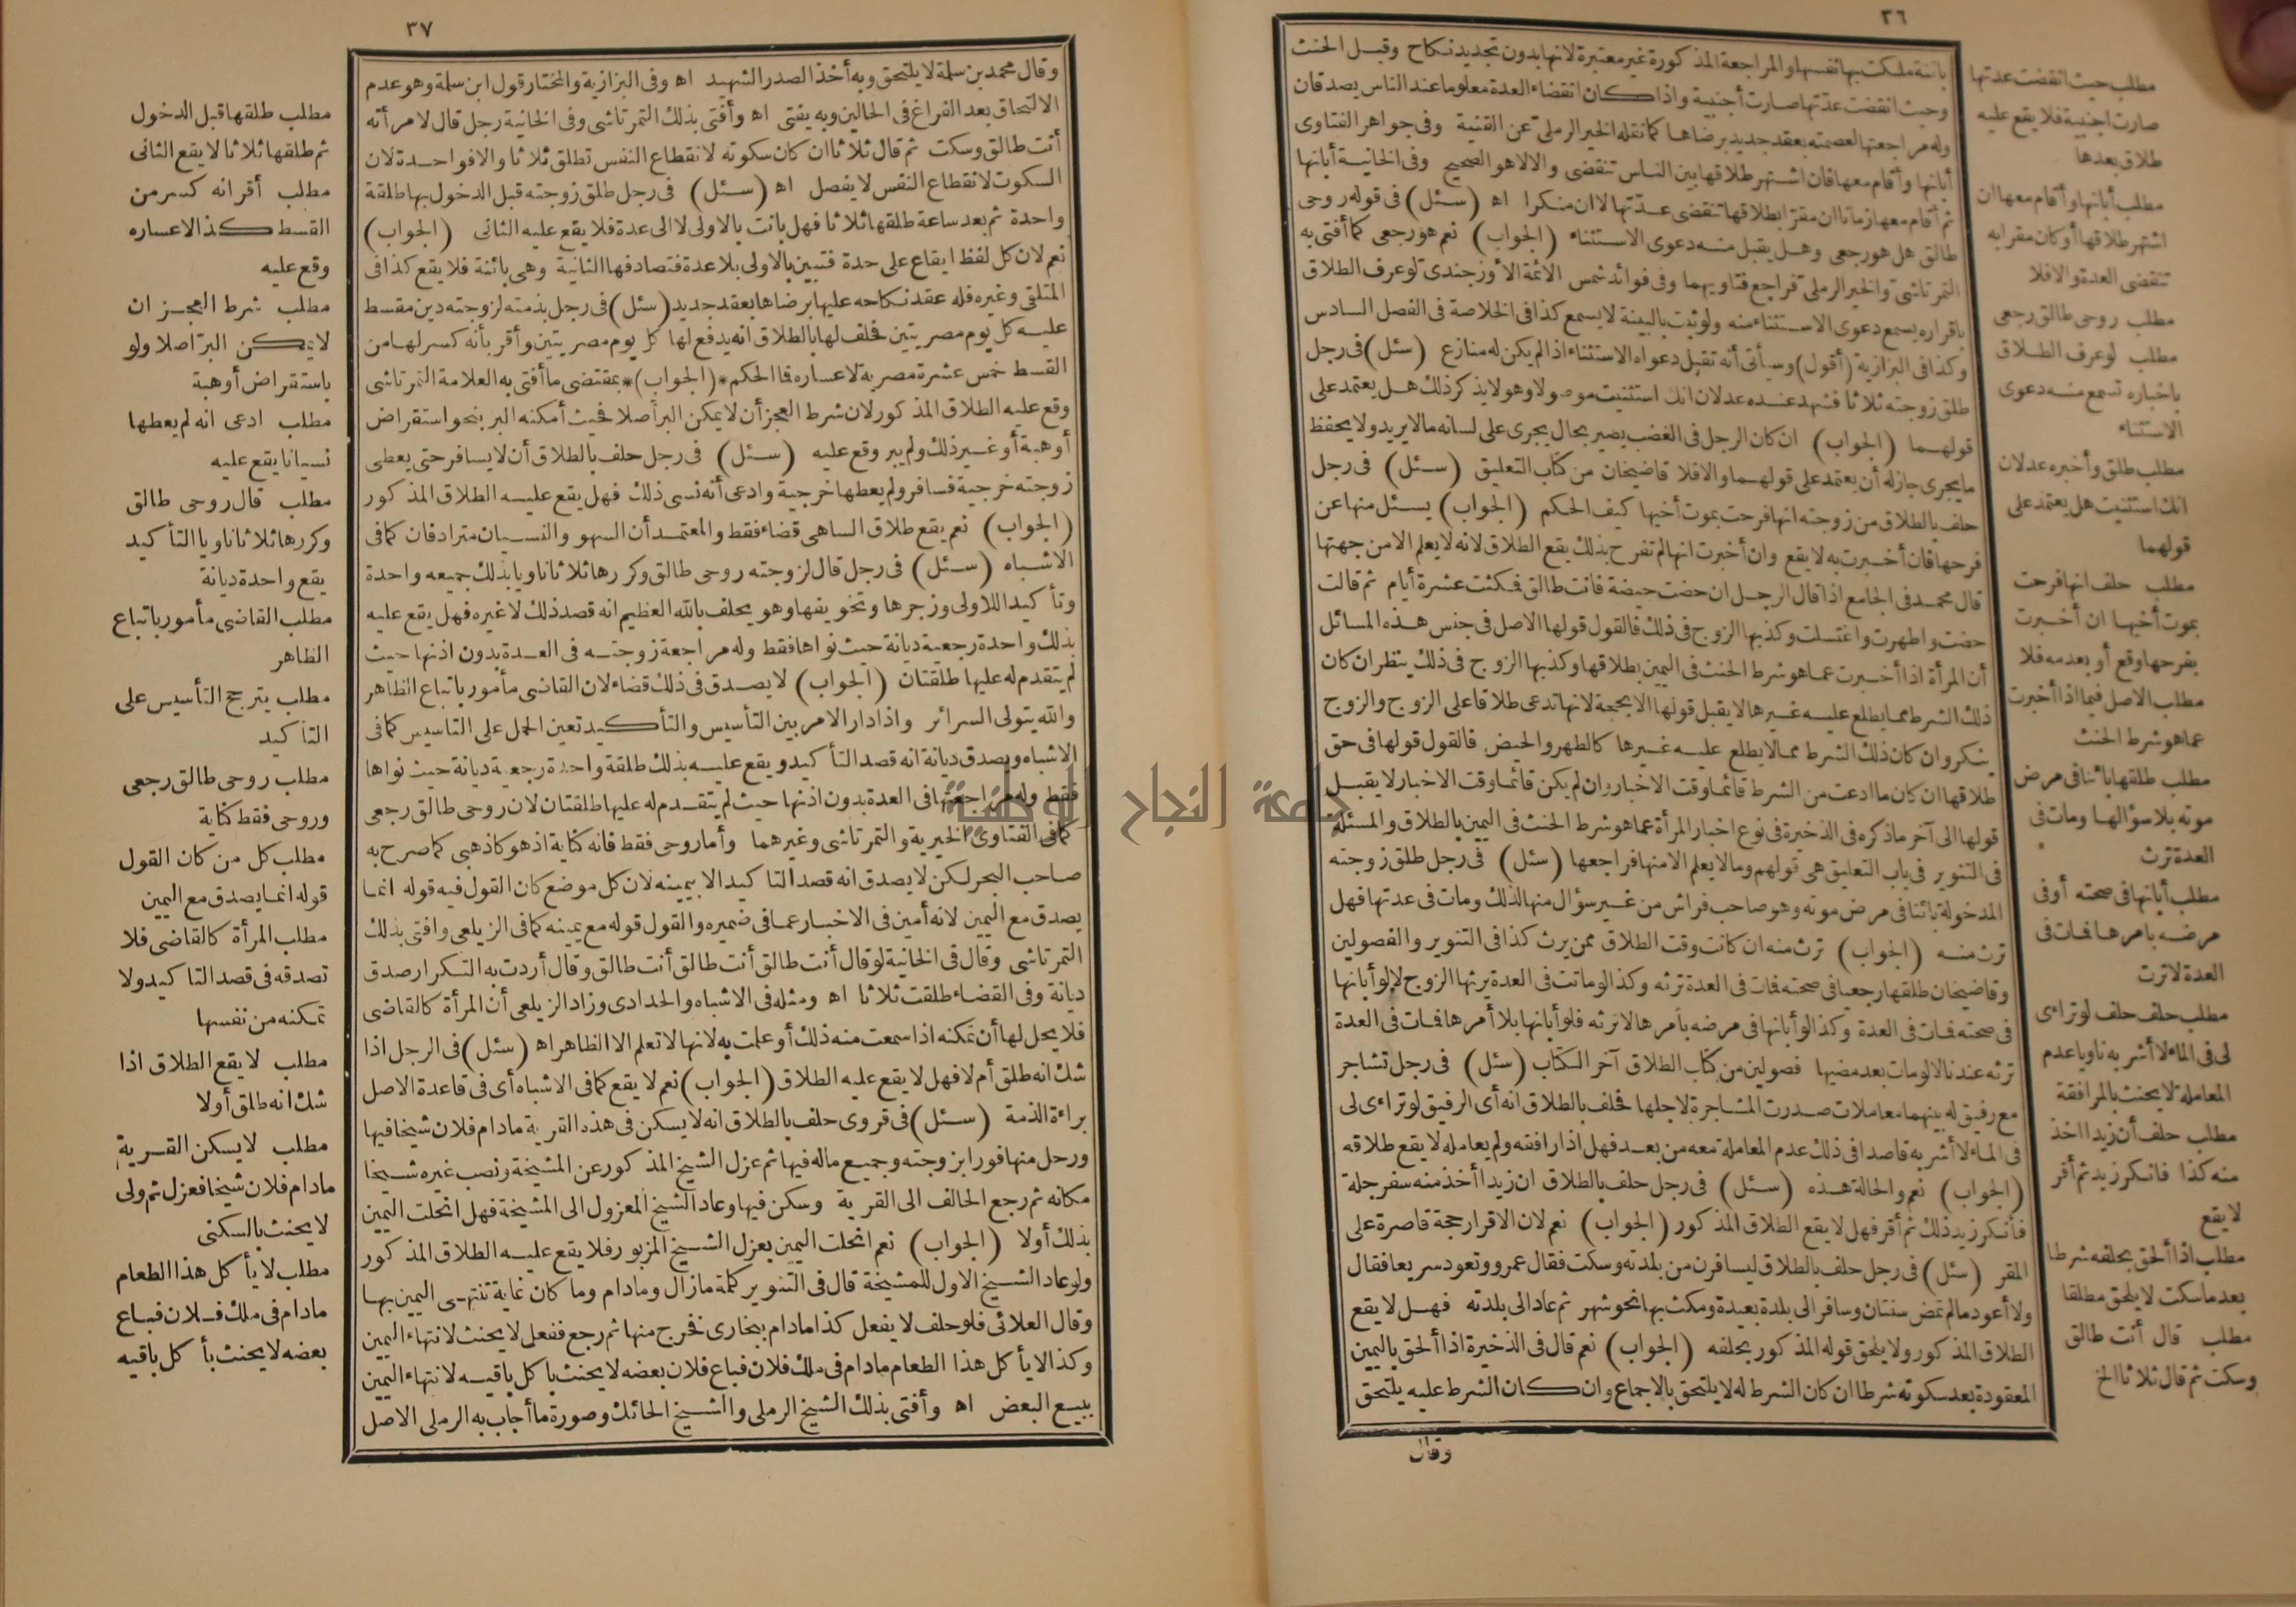 ٣٦
بائنة ملكت بها نفسها والمراجعة المذكورة غير معتبرة لانها بدون تجديد نكاح وقبل الحنث
وحيث انقضت عدّتها صارت أجنبية واذا كان انقضاء العدة معلوما عند الناس يصدقان
وله مراجعتها لعصمته بعقد جديد برضاها كما نقله الخير الرملي عن القنية وفى جواهر الفتاوى
أبانها وأقام معها فان اشتهر طلاقها بين الناس تنقضى والا لا هو الصحيح وفى الخانية أبانها
ثم أقام معها زمانا ان مقرّا بطلاقها تنقضى عدّتها لا ان منكرا اه (سئل) فى قوله روحى
طالق هل هو رجعى وهل يقبل منه دعوى الاستثناء (الجواب) نعم هو رجعى كما أفتى به
التمرتاشى والخير الرملى فراجع فتاويهما وفى فوائد شمس الائمة الأوزجندى لو عرف الطلاق
باقراره يسمع دعوى الاستثناء منه ولو ثبت بالبينة لا يسمع كذا فى الخلاصة فى الفصل السادس
وكذا فى البزازية (أقول) وسيأتى أنه تقبل دعواه الاستثناء اذا لم يكن له منازع (سئل) فى رجل
طلق زوجته ثلاثا فشهد عنده عدلان انك استثنيت موصولا وهو لا يذكر ذلك هل يعتمد على
قولهما (الجواب) ان كان الرجل فى الغضب يصير بحال يجرى على لسانه ما لا يريد ولا يحفظ
ما يجرى جاز له أن يعتمد على قولهما والا فلا قاضيخان من كتاب التعليق (سئل) فى رجل
حلف بالطلاق من زوجته انها فرحت بموت أخيها كيف الحكم (الجواب) يسئل منها عن
فرحها فان أخبرت به لا يقع وان أخبرت انها لم تفرح بذلك يقع الطلاق لانه لا يعلم الا من جهتها
قال محمد فى الجامع اذا قال الرجل ان حضت حيضة فانت طالق فمكثت عشرة أيام ثم قالت
حضت واطهرت واغتسلت وكذبها الزوج فى ذلك فالقول قولها الاصل فى جنس هذه المسائل
أن المرأة اذا أخبرت عما هو شرط الحنث فى اليمين بطلاقها وكذبها الزوج فى ذلك ينظر ان كان
ذلك الشرط مما يطلع عليه غيرها لا يقبل قولها الا بحجة لانها تدعى طلاقا على الزوج والزوج
ينكر وان كان ذلك الشرط مما لا يطلع عليه غيرها كالطهر والحيض فالقول قولها فى حق
طلاقها ان كان ما ادعت من الشرط قائما وقت الاخبار وان لم يكن قائما وقت الاخبار لا يقبل
قولها الى آخر ما ذكره فى الذخيرة فى نوع اخبار المرأة عما هو شرط الحنث فى اليمين بالطلاق والمسئلة
فى التنوير فى باب التعليق هى قولهم وما لا يعلم الا منها فراجعها (سئل) فى رجل طلق زوجته
المدخولة بائنا فى مرض موته وهو صاحب فراش من غير سؤال منها لذلك ومات فى عدتها فهل
ترث منه (الجواب) ترث منه ان كانت وقت الطلاق ممن يرث كذا فى التنوير والفصولين
وقاضيخان طلقها رجعيا فى صحته فمات فى العدة ترثه وكذا لو ماتت فى العدة يرثها الزوج لا لو أبانها
فى صحته فمات فى العدة وكذا لو أبانها فى مرضه بأمرها لا ترثه فلو أبانها بلا أمرها فمات فى العدة
ترثه عندنا لا لو مات بعد مضيها فصولين من كتاب الطلاق آخر الكتاب (سئل) فى رجل تشاجر
مع رفيق له بينهما معاملات صدرت المشاجرة لاجلها فحلف بالطلاق انه أى الرفيق لو تراءى لى
فى الماء لا أشربه قاصدا فى ذلك عدم المعاملة معه من بعد فهل اذا رافقه ولم يعامله لا يقع طلاقه
(الجواب) نعم والحالة هذه (سئل) فى رجل حلف بالطلاق ان زيدا أخذ منه سفرجلة
فأنكر زيد ذلك ثم أقر فهل لا يقع الطلاق المذكور (الجواب) نعم لان الاقرار حجة قاصرة على
المقر (سئل) فى رجل حلف بالطلاق ليسافرن من بلدته وسكت فقال عمرو وتعود سريعا فقال
ولا أعود ما لم تمض سنتان وسافر الى بلدة بعيدة ومكث بها نحو شهر ثم عاد الى بلدته فهل لا يقع
الطلاق المذكور ولا يلحق قوله المذكور بحلفه (الجواب) نعم قال فى الذخيرة اذا ألحق باليمين
المعقودة بعد سكوته شرطا ان كان الشرط له لا يلتحق بالاجماع وان كان الشرط عليه يلتحق
وقال
مطلب حيث انقضت عدتها
صارت اجنبية فلا يقع عليه
طلاق بعدها
مطلب أبانها وأقام معها ان
اشتهر طلاقها أو كان مقرا به
تنقضى العدة والا فلا
مطلب روحى طالق رجعى
مطلب لو عرف الطلاق
باخباره تسمع منه دعوى
الاستثناء
مطلب طلق وأخبره عدلان
انك استثنيت هل يعتمد على
قولهما
مطلب حلف انها فرحت
بموت أخيها ان أخبرت
بفرحها وقع أو بعدمه فلا
مطلب الاصل فيما اذا أخبرت
عما هو شرط الحنث
مطلب طلقها بائنا فى مرض
موته بلا سؤالها ومات فى
العدة ترث
مطلب أبانها فى صحته أو فى
مرضه بامرها فمات فى
العدة لا ترث
مطلب حلف حلف لو تراءى
لى فى الماء لا أشربه ناويا عدم
المعاملة لا يحنث بالمرافقة
مطلب حلف أن زيدا اخذ
منه كذا فانكر زيد ثم أقر
لا يقع
مطلب اذا ألحق بحلفه شرطا
بعد ما سكت لا يلحق مطلقا
مطلب قال أنت طالق
وسكت ثم قال ثلاثا الخ
٣٧
وقال محمد بن سلمة لا يلتحق وبه أخذ الصدر الشهيد اه وفى البزازية والمختار قول ابن سلمة وهو عدم
الالتحاق بعد الفراغ فى الحالين وبه يفتى اه وأفتى بذلك التمرتاشى وفى الخانية رجل قال لامرأته
أنت طالق وسكت ثم قال ثلاثا ان كان سكوته لانقطاع النفس تطلق ثلاثا والا فواحدة لان
السكوت لانقطاع النفس لا يفصل اه (سئل) فى رجل طلق زوجته قبل الدخول بها طلقة
واحدة ثم بعد ساعة طلقها ثلاثا فهل بانت بالاولى لا الى عدة فلا يقع عليه الثانى (الجواب)
نعم لان كل لفظ ايقاع على حدة فتبين بالاولى بلا عدة فتصادفها الثانية وهى بائنة فلا يقع كذا فى
الملتقى وغيره فله عقد نكاحه عليها برضاها بعقد جديد (سئل) فى رجل بذمته لزوجته دين مقسط
عليه كل يوم مصريتين فحلف لها بالطلاق انه يدفع لها كل يوم مصريتين وأقر بأنه كسر لها من
القسط خمس عشرة مصرية لاعساره فما الحكم *(الجواب)* بمقتضى ما أفتى به العلامة التمرتاشى
وقع عليه الطلاق المذكور لان شرط العجز أن لا يمكن البر أصلا فحيث أمكنه البر بنحو استقراض
أو هبة أو غير ذلك ولم يبر وقع عليه (سئل) فى رجل حلف بالطلاق أن لا يسافر حتى يعطى
زوجته خرجية فسافر ولم يعطها خرجية وادعى أنه نسى ذلك فهل يقع عليه الطلاق المذكور
(الجواب) نعم يقع طلاق الساهى قضاء فقط والمعتمد أن السهو والنسيان مترادفان كما فى
الاشباه (سئل) فى رجل قال لزوجته روحى طالق وكررها ثلاثا ناويا بذلك جميعه واحدة
وتأكيد اللاولى وزجرها وتخويفها وهو يحلف بالله العظيم انه قصد ذلك لا غيره فهل يقع عليه
بذلك واحدة رجعية ديانة حيث نواها فقط وله مراجعة زوجته فى العدة بدون اذنها حيث
لم يتقدم له عليها طلقتان (الجواب) لا يصدق فى ذلك قضاء لان القاضى مأمور باتباع الظاهر
والله يتولى السرائر واذا دار الامر بين التأسيس والتأكيد تعين الحمل على التاسيس كما فى
الاشباه ويصدق ديانة انه قصد التأكيد ويقع عليه بذلك طلقة واحدة رجعية ديانة حيث نواها
فقط وله مراجعتها فى العدة بدون اذنها حيث لم يتقدم له عليها طلقتان لان روحى طالق رجعى
كما فى الفتاوى الخيرية والتمرتاشى وغيرهما وأما روحى فقط فانه كناية اذ هو كاذهبى كما صرح به
صاحب البحر لكن لا يصدق انه قصد التاكيد الا بيمينه لان كل موضع كان القول فيه قوله انما
يصدق مع اليمين لانه أمين فى الاخبار عما فى ضميره والقول قوله مع يمينه كما فى الزيلعى وافتى بذلك
التمرتاشى وقال فى الخانية لو قال أنت طالق أنت طالق أنت طالق وقال أردت به التكرار صدق
ديانة وفى القضاء طلقت ثلاثا اه ومثله فى الاشباه والحدادى وزاد الزيلعى أن المرأة كالقاضى
فلا يحل لها أن تمكنه اذا سمعت منه ذلك أو علمت به لانها لا تعلم الا الظاهر اه (سئل) فى الرجل اذا
شك انه طلق أم لا فهل لا يقع عليه الطلاق (الجواب) نعم لا يقع كما فى الاشباه أى فى قاعدة الاصل
براءة الذمة (سئل) فى قروى حلف بالطلاق انه لا يسكن فى هذه القرية ما دام فلان شيخا فيها
ورحل منها فورا بزوجته وجميع ماله فيها ثم عزل الشيخ المذكور عن المشيخة ونصب غيره شيخا
مكانه ثم رجع الحالف الى القرية وسكن فيها وعاد الشيخ المعزول الى المشيخة فهل انحلت اليمين
بذلك أولا (الجواب) نعم انحلت اليمين بعزل الشيخ المزبور فلا يقع عليه الطلاق المذكور
ولو عاد الشيخ الاول للمشيخة قال فى التنوير كلمة ما زال وما دام وما كان غاية تنتهى اليمين بها
وقال العلائى فلو حلف لا يفعل كذا ما دام ببخارى فخرج منها ثم رجع ففعل لا يحنث لانتهاء اليمين
وكذا لا يأكل هذا الطعام ما دام فى ملك فلان فباع فلان بعضه لا يحنث باكل باقيه لانتهاء اليمين
ببيع البعض اه وأفتى بذلك الشيخ الرملى والشيخ الحائك وصورة ما أجاب به الرملى الاصل
مطلب طلقها قبل الدخول
ثم طلقها ثلاثا لا يقع الثانى
مطلب أقر انه كسر من
القسط كذا لاعساره
وقع عليه
مطلب شرط العجز ان
لا يمكن البر أصلا ولو
باستقراض أو هبة
مطلب ادعى انه لم يعطها
نسيانا يقع عليه
مطلب قال روحى طالق
وكررها ثلاثا ناويا التأكيد
يقع واحدة ديانة
مطلب القاضى مأمور باتباع
الظاهر
مطلب يترجح التأسيس على
التأكيد
مطلب روحى طالق رجعى
وروحى فقط كناية
مطلب كل من كان القول
قوله انما يصدق مع اليمين
مطلب المرأة كالقاضى فلا
تصدقه فى قصد التاكيد ولا
تمكنه من نفسها
مطلب لا يقع الطلاق اذا
شك انه طلق أولا
مطلب لا يسكن القرية
ما دام فلان شيخا فعزل ثم ولى
لا يحنث بالسكنى
مطلب لا يأكل هذا الطعام
ما دام فى ملك فلان فباع
بعضه لا يحنث بأكل باقيه
جامعة النجاح الوطنية